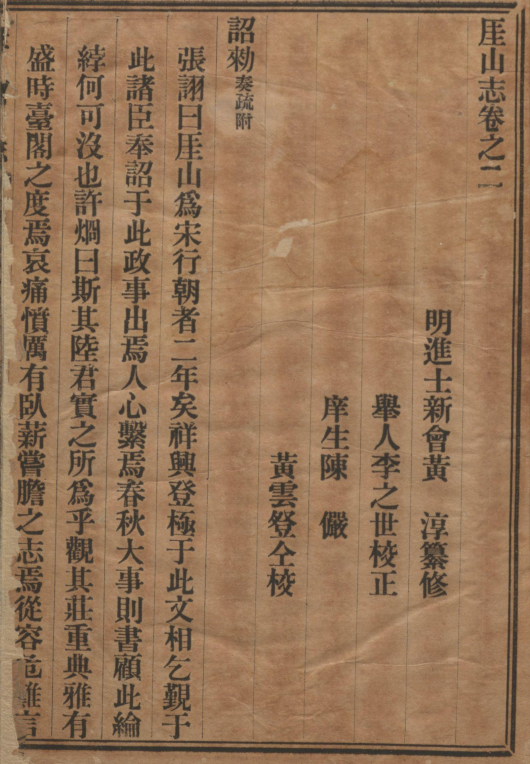 厓山志卷之二
明進士新會黃　淳纂修
舉人李之世校正
庠生陳　儼
黃雲登仝校
詔勑奏疏附
張詡曰厓山爲宋行朝者二年矣祥興登極于此文相乞覲于
此諸臣奉詔于此政事出焉人心繫焉春秋大事則書顧此綸
綍何可沒也許炯曰斯其陸君實之所爲乎觀其莊重典雅有
盛時臺閣之度焉哀痛憤厲有臥薪嘗膽之志焉從容危難言